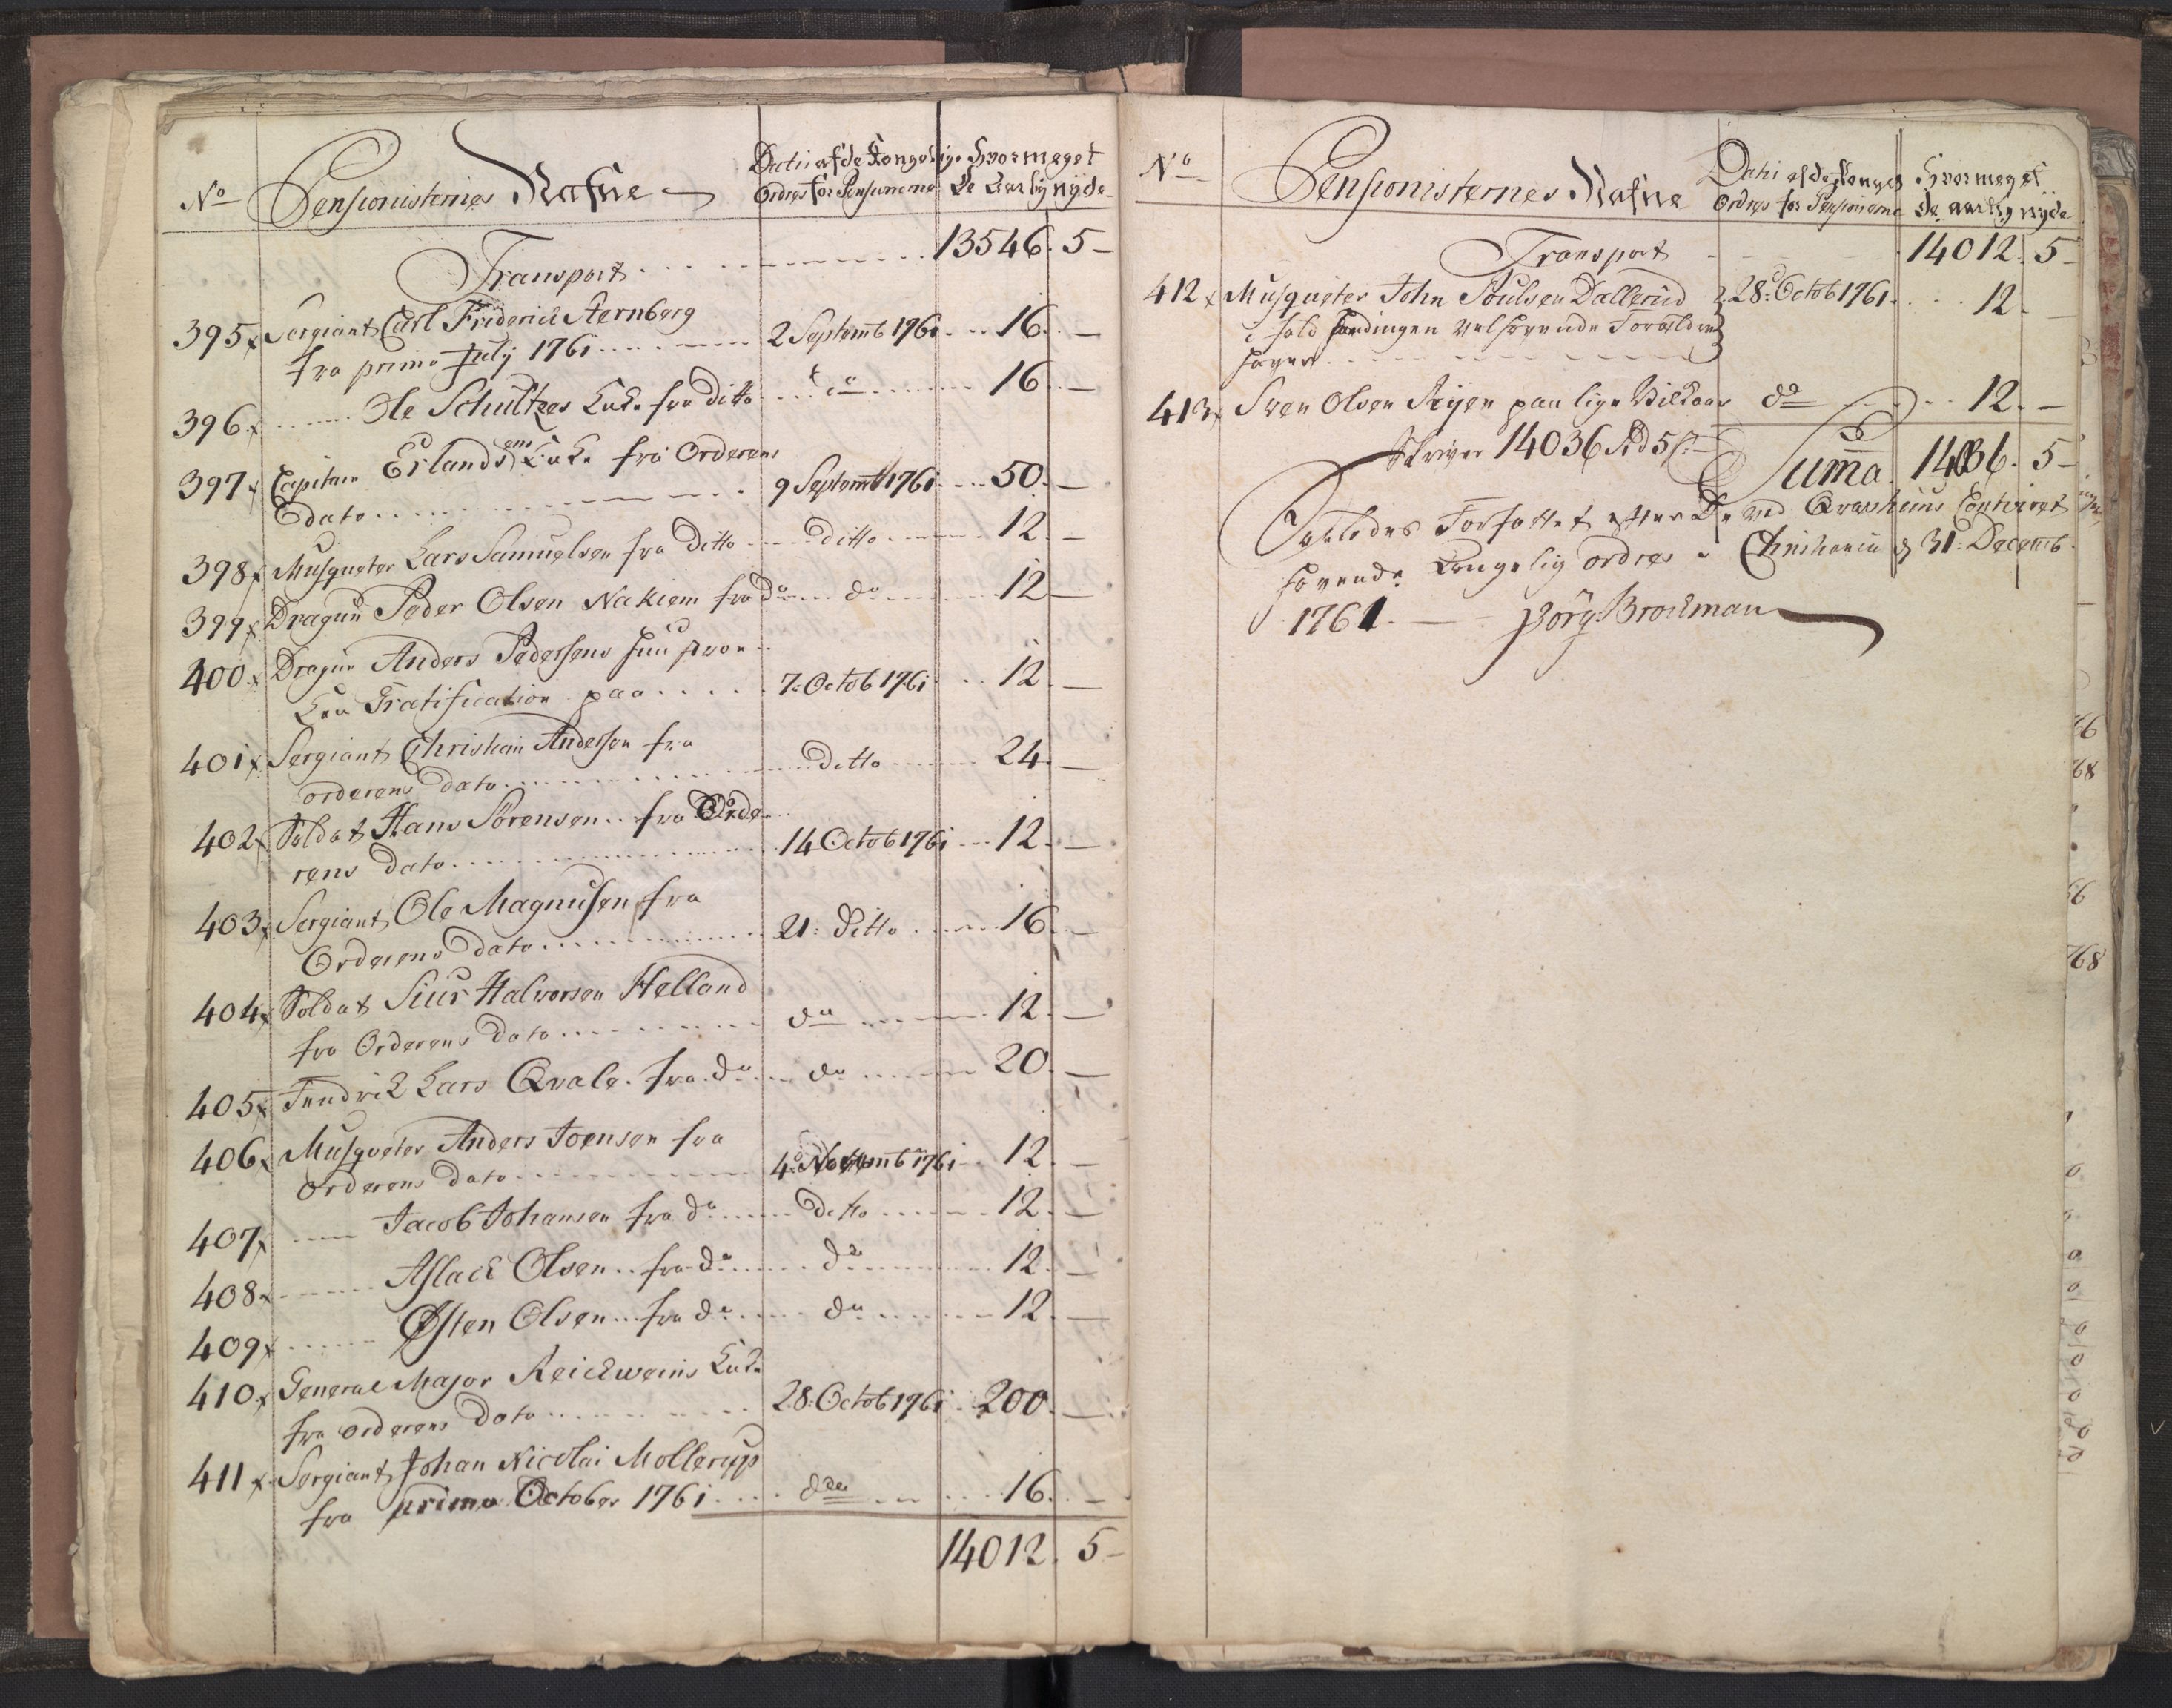 No Pensionisternes Nafne Datis af de Kongelige Ordres for Pensionerne Hvormeget de Aarlig nyde
Transport 13546. 5 -
395 x Sergiant Carl Friderich Sternberg
fra primo July 1761 2 Septemb 1761 16. -
396 x Ole Schultzes Enke fra Ditto do 16. -
397 x Capitain Erlandsens Enke fra Orderens
dato 9 Septemb 1761 50. -
398 x Musqueter Lars Samuelsen fra Ditto ditto 12. -
399 x Dragun Peder Olsen Nakiem fra do do 12 -
400 x Dragun Anders Pedersens
Gratification paa 7 Octob 1761 12. -
401 x Sergiant Christian Andersen fra
orderens dato ditto 24. -
402 x Soldat Hans Sörensen fra Orde
rens dato 14 Octob 1761 12. -
403 x Sergiant Ole Magnusen fra
Orderens dato 21: Ditto 16. -
404 x Soldat Siur Halvorsen Helland
fra Orderens Dato do 12. -
405 x Fendrik Lars Qvale fra do do 20. -
406 x Musqueter Anders Joensen fra
orderens dato 4 Novemb 1761 12. -
407 x Jacob Johansen fra do Ditto 12. -
408 x Aslack Olsen fra do do 12. -
409 x Østen Olsen fra do do 12. -
410 x General Major Reickweins Enke
fra orderens Dato 28: Octob 1761 200. -
411 x Sergiant Johan Nicolai Mollerup
fra primo October 1761 do 16. -
14012. 5 -
No Pensionisternes Nafne Datis af de Konges Ordres for Pensionerne Hvormeget de aarlig nyde
Transport 14012. 5 -
412 x Musqueter John Poulsen Dallerud 28: Octob 1761 12. -
i fald hand ingen velhavende Forældre
haver
413 x Sven Olsen Ryen paa lige Vilkaar do 12. -
Skriver 14036 Rd 5 Summa 14036. 5 -
Saaledes Forfattet efter De ved Contoiret
havende Kongelig ordres Christiania d 31: Decemb
1761. - Börg: Brockman